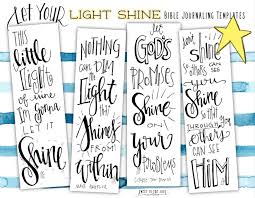 Let Your LIGHT SHINE BIBLE JOURNALING TEMPLATES
THIS
little
light
of
mine
I'm
gonna
LET IT
Shine
NOTHING
can
DIM
the
Light
that
Shines
FROM
within
MAYA ANGELOU
let
GOD'S
PROMISES
Shine
on
YOUR
PROBLEMS
CORRIE TEN BOOM
Shine
so that
others
CAN SEE
YOU
Shine
so that
THROUGH YOU
others
CAN SEE
HIM